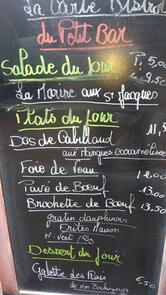 La Carte Bistrot
du Petit Bar
Salade du Jour P. 5,00
G. 9,50
La Marine aux St Jacques
Plats du Jour
Dos de Cabillaud
aux Mangues Caramélisées
Foie de Veau
Pavé de Bœuf 13.00
Brochette de Bœuf 13.50
gratin dauphinois
Frites Maison
H. Vert
Dessert du Jour
Galette des Rois 6.50
de Nos Boulangers